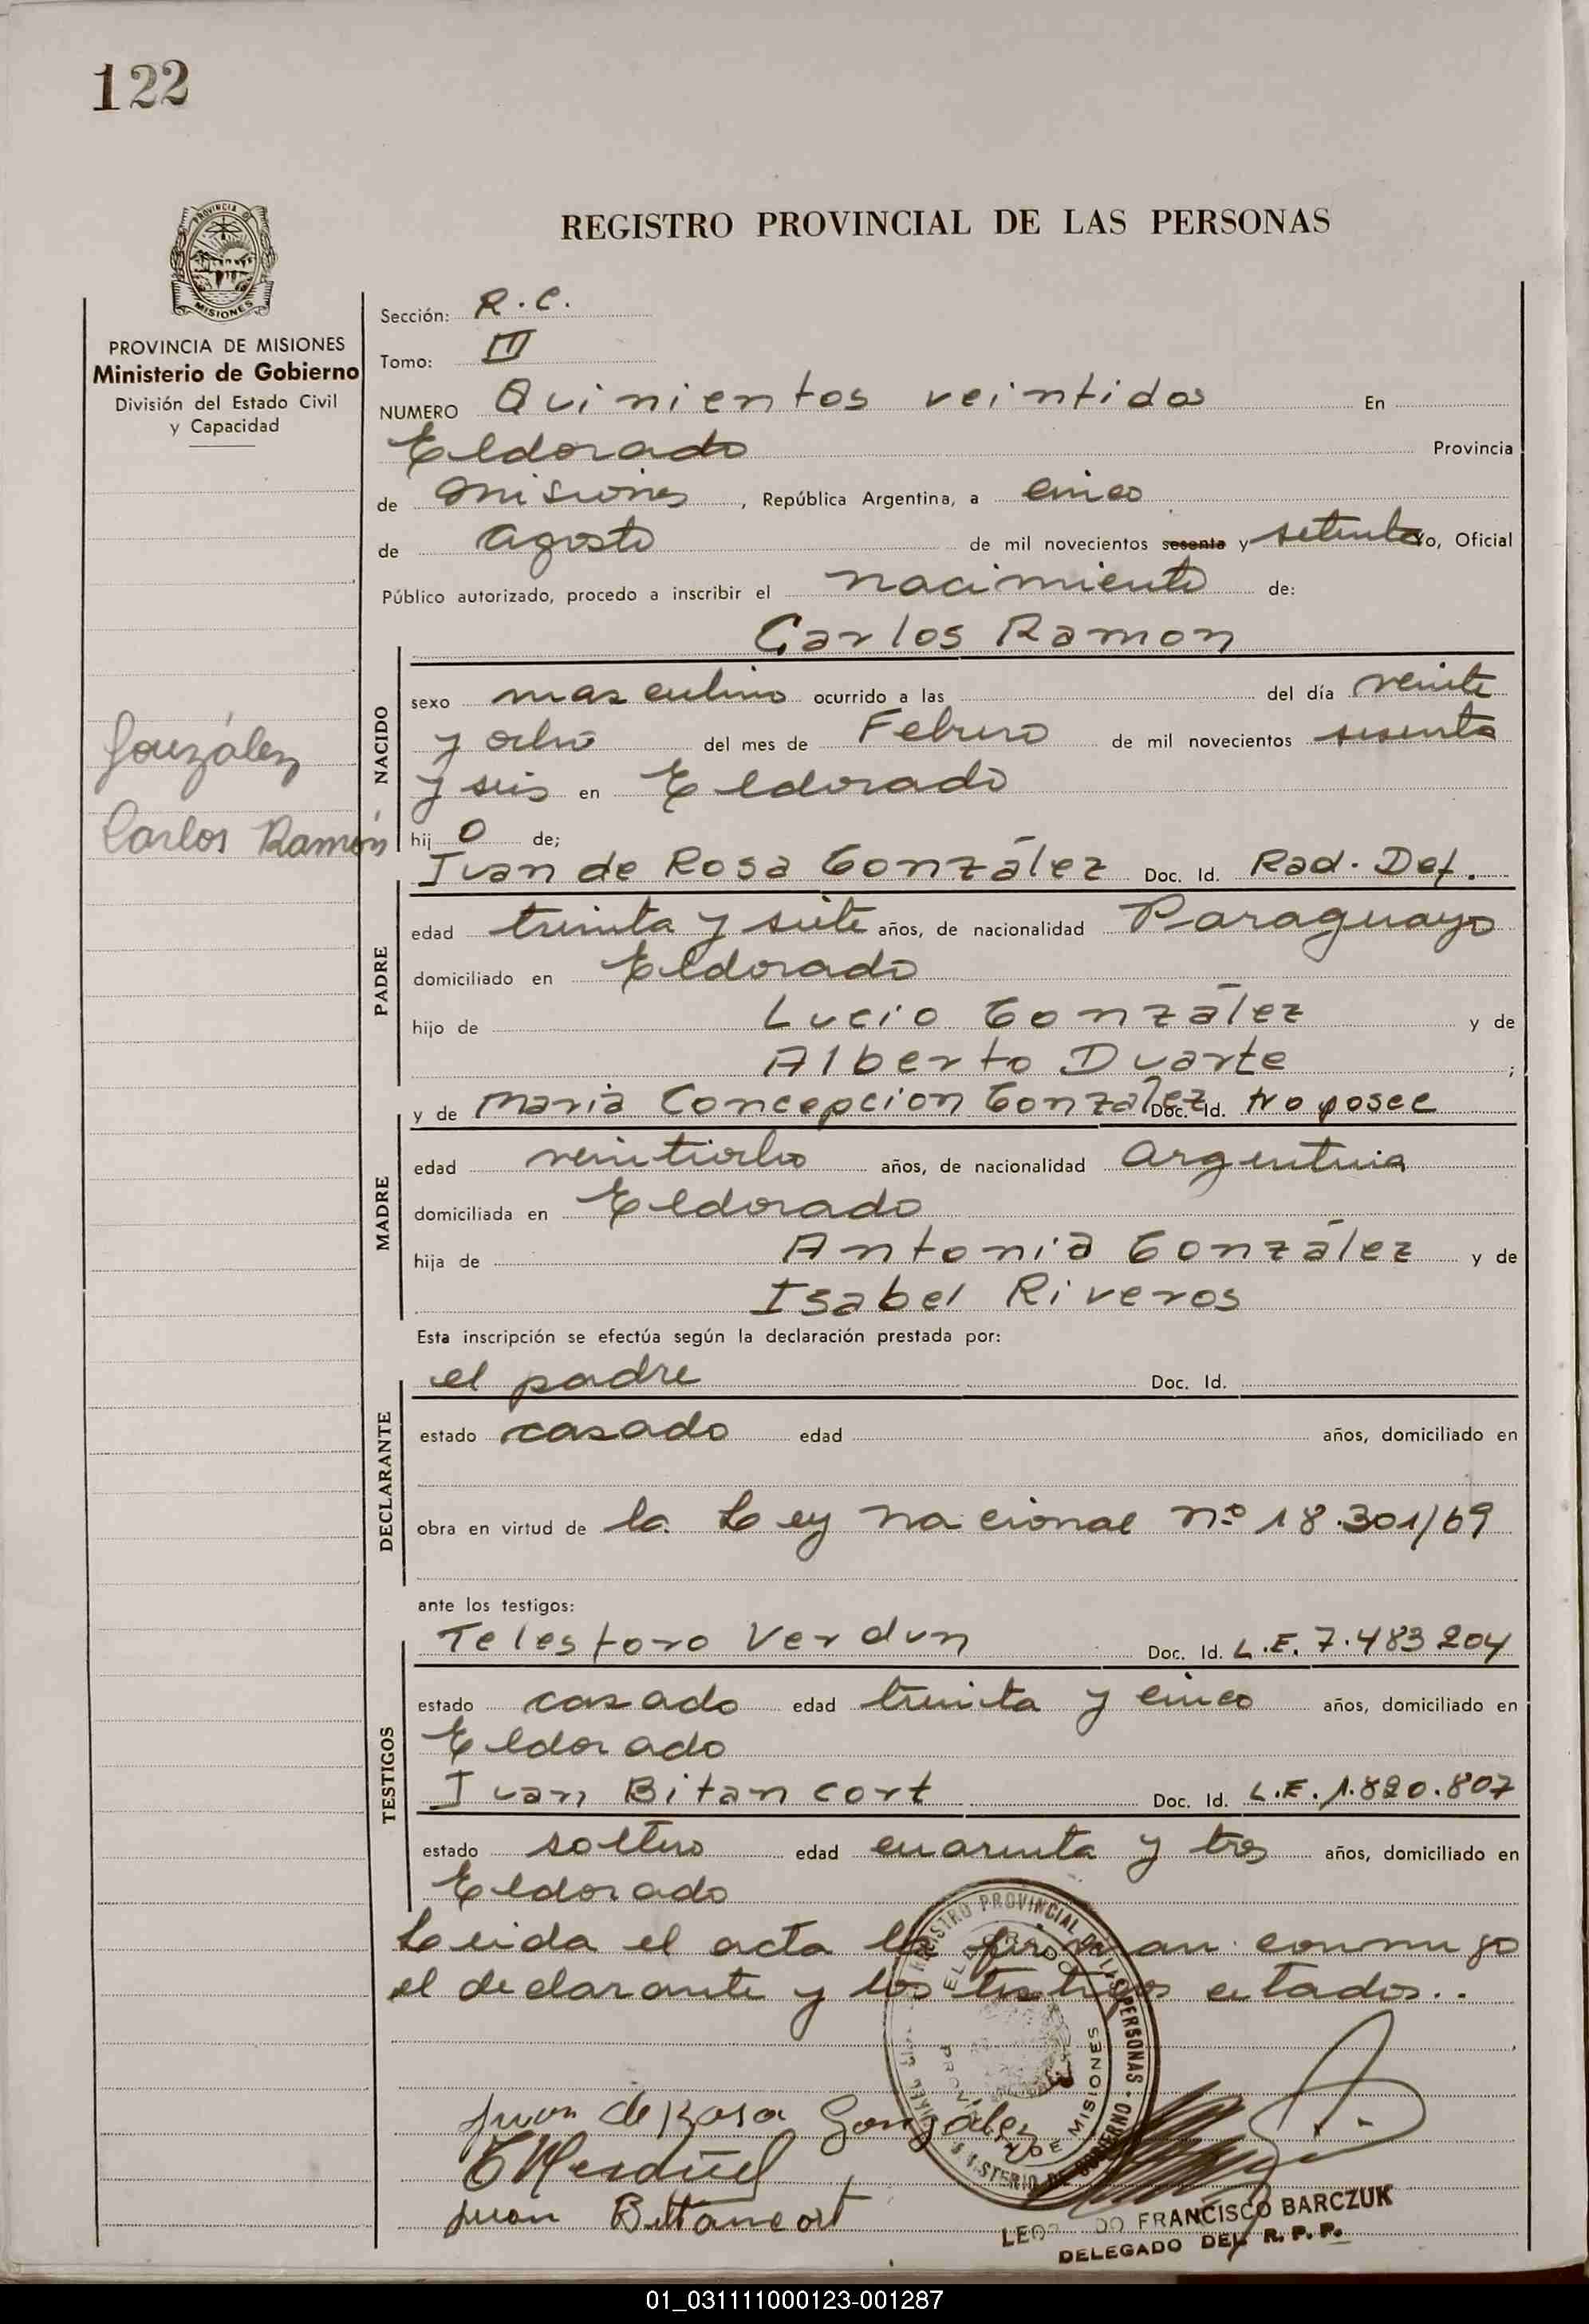 122
REGISTRO PROVINCIAL DE LAS PERSONAS
PROVINCIA
MISIONES
PROVINCIA DE MISIONES
Ministerio de Gobierno
División del Estado Civil
y Capacidad
González
Carlos Ramón
Sección: R.C.
Tomo: III
NUMERO Quinientos veintidos En
Eldorado Provincia
de Misiones, República Argentina, a cinco
de agosto de mil novecientos sesenta y setenta Yo, Oficial
Público autorizado, procedo a inscribir el nacimiento de:
Carlos Ramon
NACIDO
sexo masculino ocurrido a las del día veinte
y ocho del mes de Febrero de mil novecientos sesenta
y seis en Eldorado
hij o de;
Juan de Rosa González Doc. Id. Rad. Def.
PADRE
edad treinta y siete años, de nacionalidad Paraguayo
domiciliado en Eldorado
hijo de Lucio González y de
Alberto Duarte ;
y de Maria Concepcion González Doc. Id. No posee
MADRE
edad veintiocho años, de nacionalidad Argentina
domiciliada en Eldorado
hija de Antonia González y de
Isabel Riveros
Esta inscripción se efectúa según la declaración prestada por:
el padre Doc. Id.
DECLARANTE
estado casado edad años, domiciliado en
obra en virtud de la Ley nacional nº 18.301/69
ante los testigos:
Telesforo Verdun Doc. Id. L.E. 7.483 204
TESTIGOS
estado casado edad treinta y cinco años, domiciliado en
Eldorado
Juan Bitancort Doc. Id. L.E. 1.820.807
estado soltero edad cuarenta y tres años, domiciliado en
Eldorado
Leida el acta la firman conmigo
el declarante y los testigos citados..
REGISTRO PROVINCIAL DE LAS PERSONAS
ELDORADO
PROVINCIA DE MISIONES
MINISTERIO DE GOBIERNO
Juan de Rosa González
Juan Bittancort
FRANCISCO BARCZUK
DELEGADO DEL R. P. P.
01_031111000123-001287